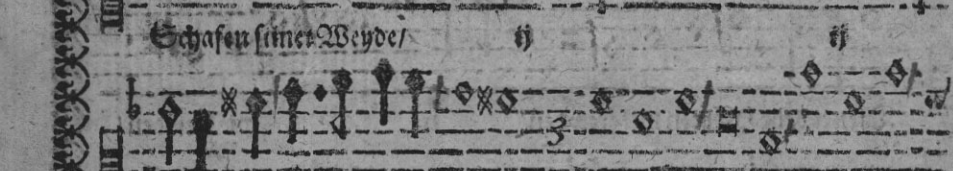 Schafen seiner Weyde/ ij ij
3